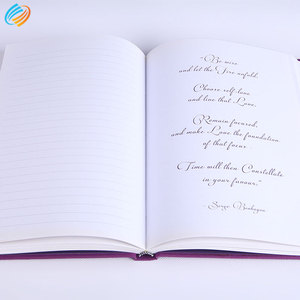 "Be wise
and let the Fire unfold.
Choose self-love
and line that Lane.
Remain focused,
and make Love the foundation
of that focus.
Time will then Constellate
in your favour."